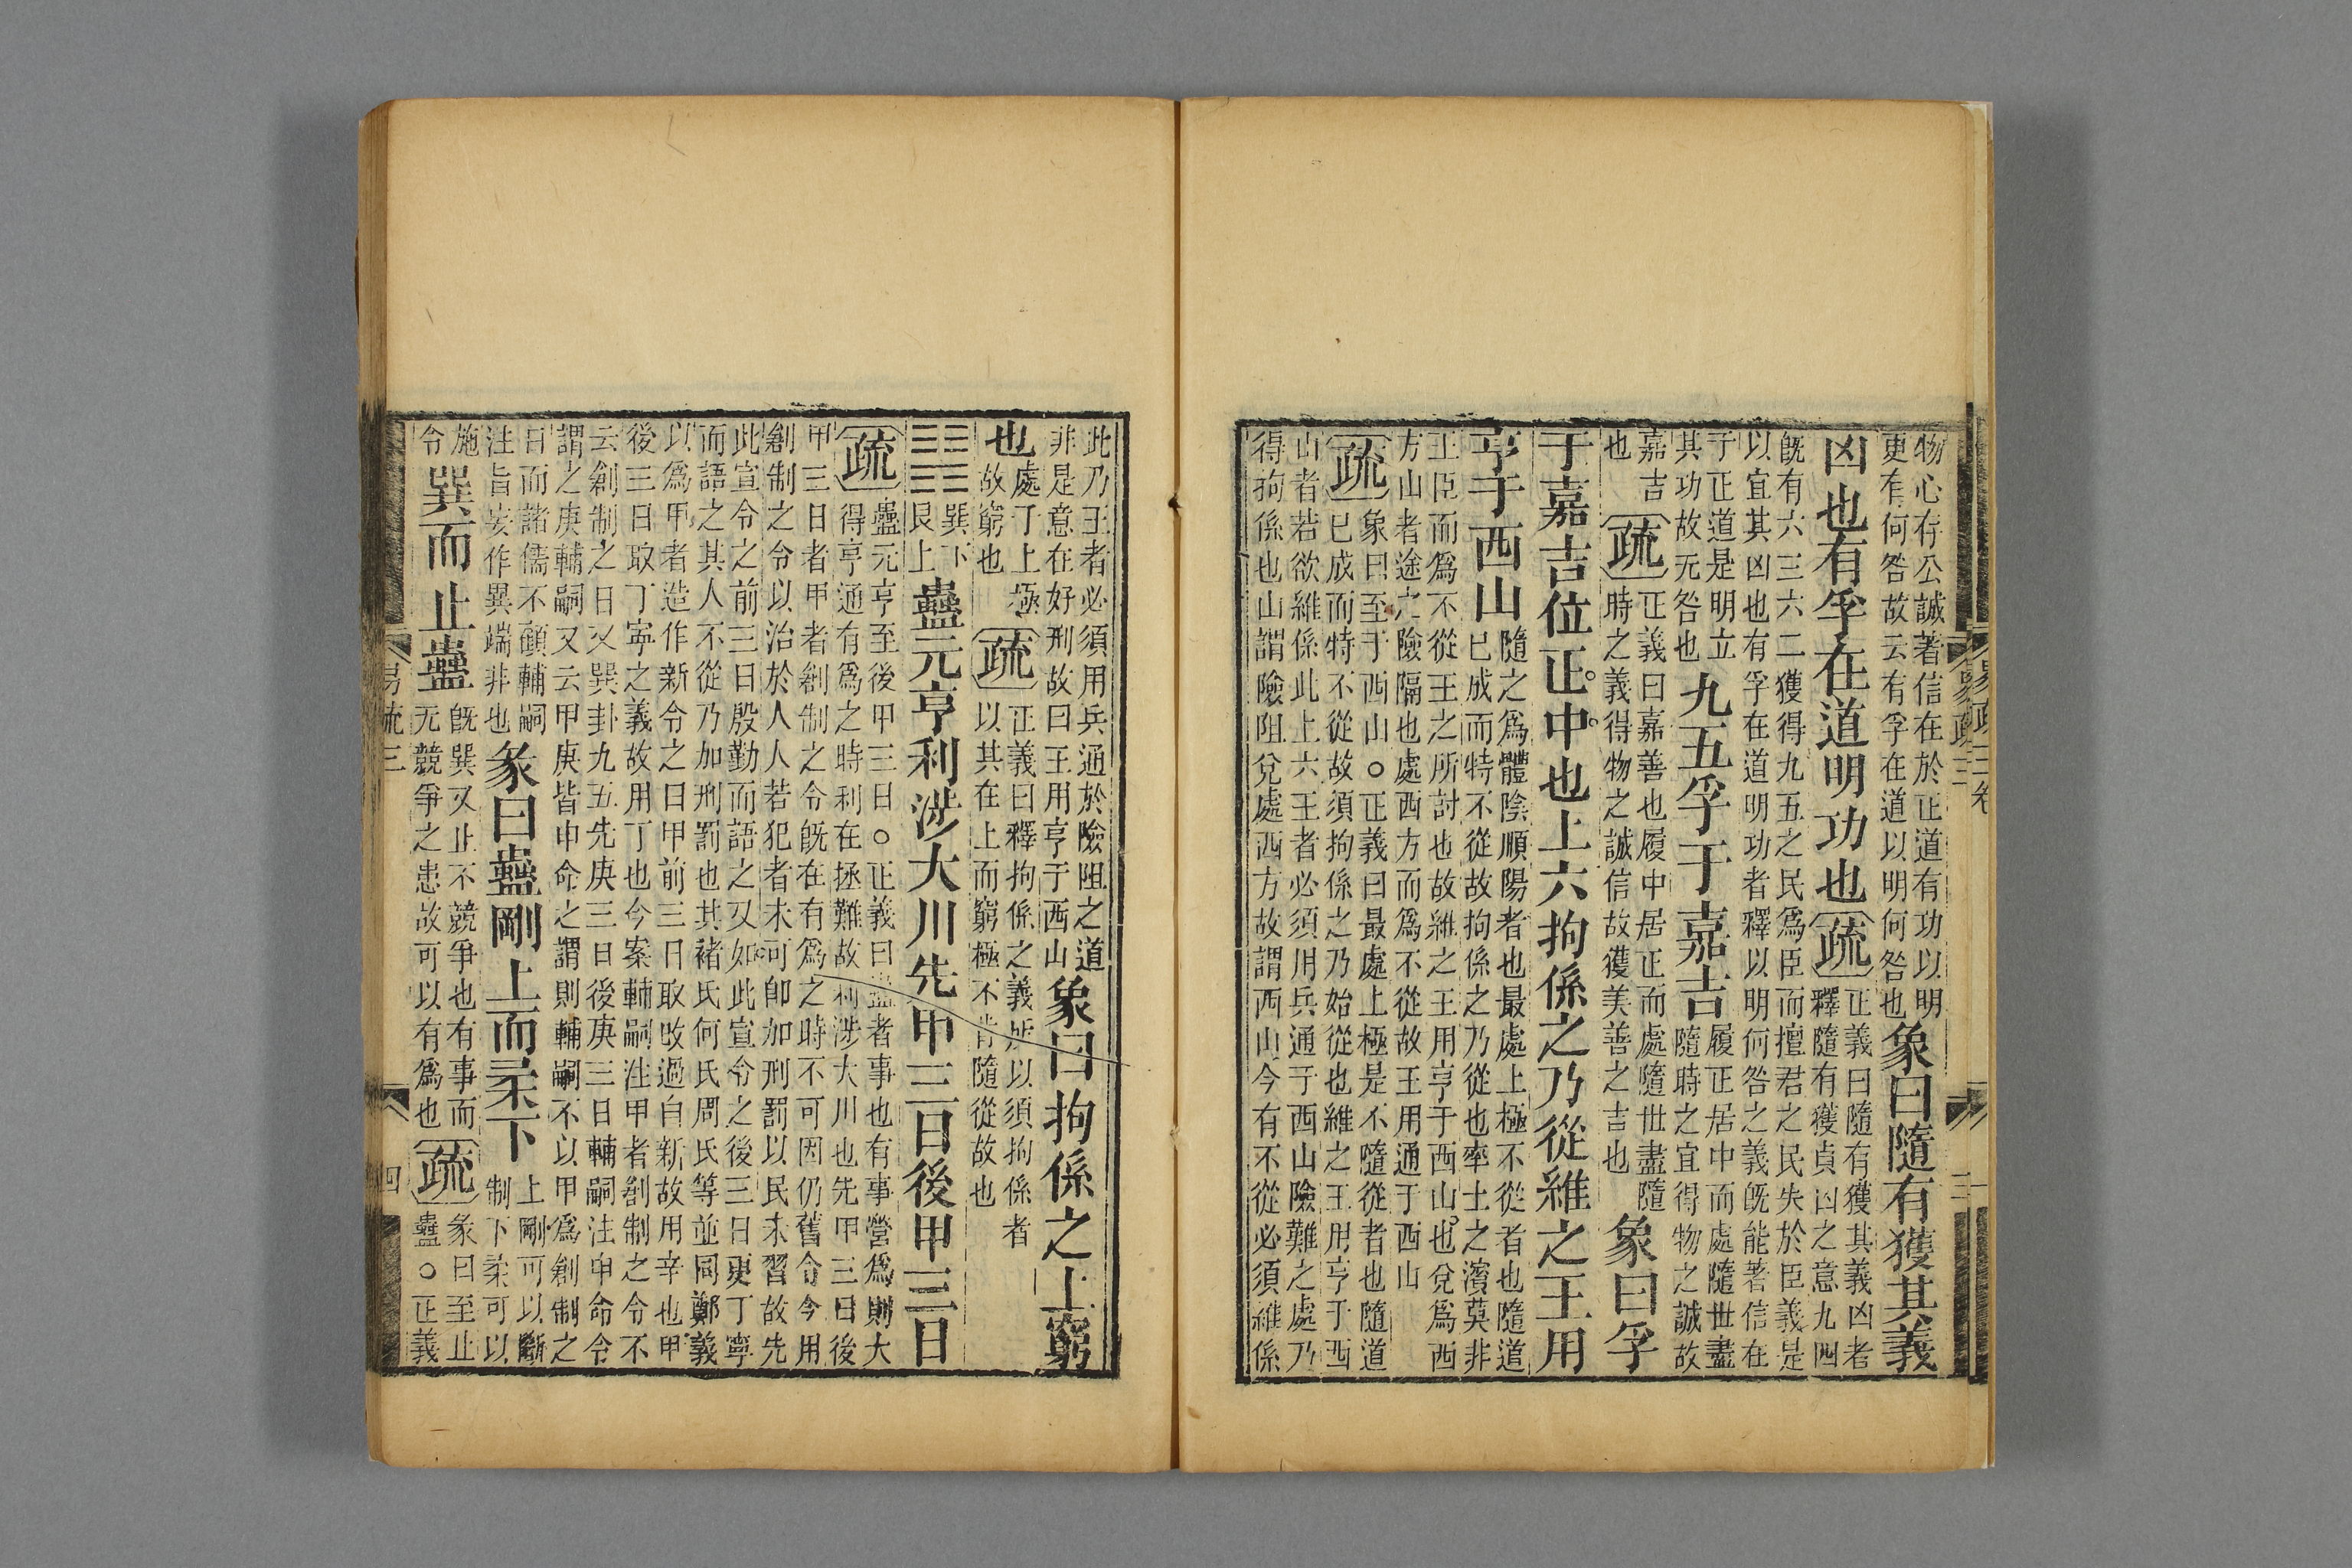 物心存公誠著信在於正道有功以明
更有何咎故云有孚在道以明何咎也
象曰隨有獲其義
凶也有孚在道明功也疏
正義曰隨有獲其義凶者
釋隨有獲貞凶之意九四
既有六三六二獲得九五之民爲臣而擅君之民失於臣義是
以宜其凶也有孚在道明功者釋以明何咎之義既能著信在
于正道是明立
其功故无咎也
九五孚于嘉吉
履正居中而處隨世盡
隨時之宜得物之誠故
嘉吉
也
疏
正義曰嘉善也履中居正而處隨世盡隨
時之義得物之誠信故獲美善之吉也
象曰孚
于嘉吉位正中也上六拘係之乃從維之王用
亨于西山
隨之爲體陰順陽者也最處上極不從者也隨道
已成而特不從故拘係之乃從也率土之濱莫非
王臣而爲不從王之所討也故維之王用亨于西山也兌爲西
方山者途之險隔也處西方而爲不從故王用通于西山
疏
象曰至于西山○正義曰最處上極是不隨從者也隨道
已成而特不從故須拘係之乃始從也維之王用亨于西
山者若欲維係此上六王者必須用兵通于西山險難之處乃
得拘係也山謂險阻兌處西方故謂西山今有不從必須維係
此乃王者必須用兵通於險阻之道
非是意在好刑故曰王用亨于西山
象曰拘係之上窮
也
處了上極
故窮也
疏
正義曰釋拘係之義所以須拘係者
以其在上而窮極不肯隨從故也
䷑
巽下
艮上
蠱元亨利涉大川先甲三日後甲三日
疏
蠱元亨至後甲三日○正義曰蠱者事也有事營爲則大
得亨通有爲之時利在拯難故利涉大川也先甲三日後
甲三日者甲者創制之令既在有爲之時不可因仍舊令今用
創制之令以治於人人若犯者未可即加刑罰以民未習故先
此宣令之前三日殷勤而語之又如此宣令之後三日更丁寧
而語之其人不從乃加刑罰也其褚氏何氏周氏等並同鄭義
以爲甲者造作新令之日甲前三日取改過自新故用辛也甲
後三日取丁寧之義故用丁也今案輔嗣注甲者創制之令不
云創制之日又巽卦九五先庚三日後庚三日輔嗣注申命令
謂之庚輔嗣又云甲庚皆申命之謂則輔嗣不以甲爲創制之
日而諸儒不顧輔嗣
注旨妄作異端非也
彖曰蠱剛上而柔下
上剛可以斷
制下柔可以
施
令
巽而止蠱
既巽又止不競爭也有事而
无競爭之患故可以有爲也
疏
彖曰至止
蠱○正義
易疏三
四